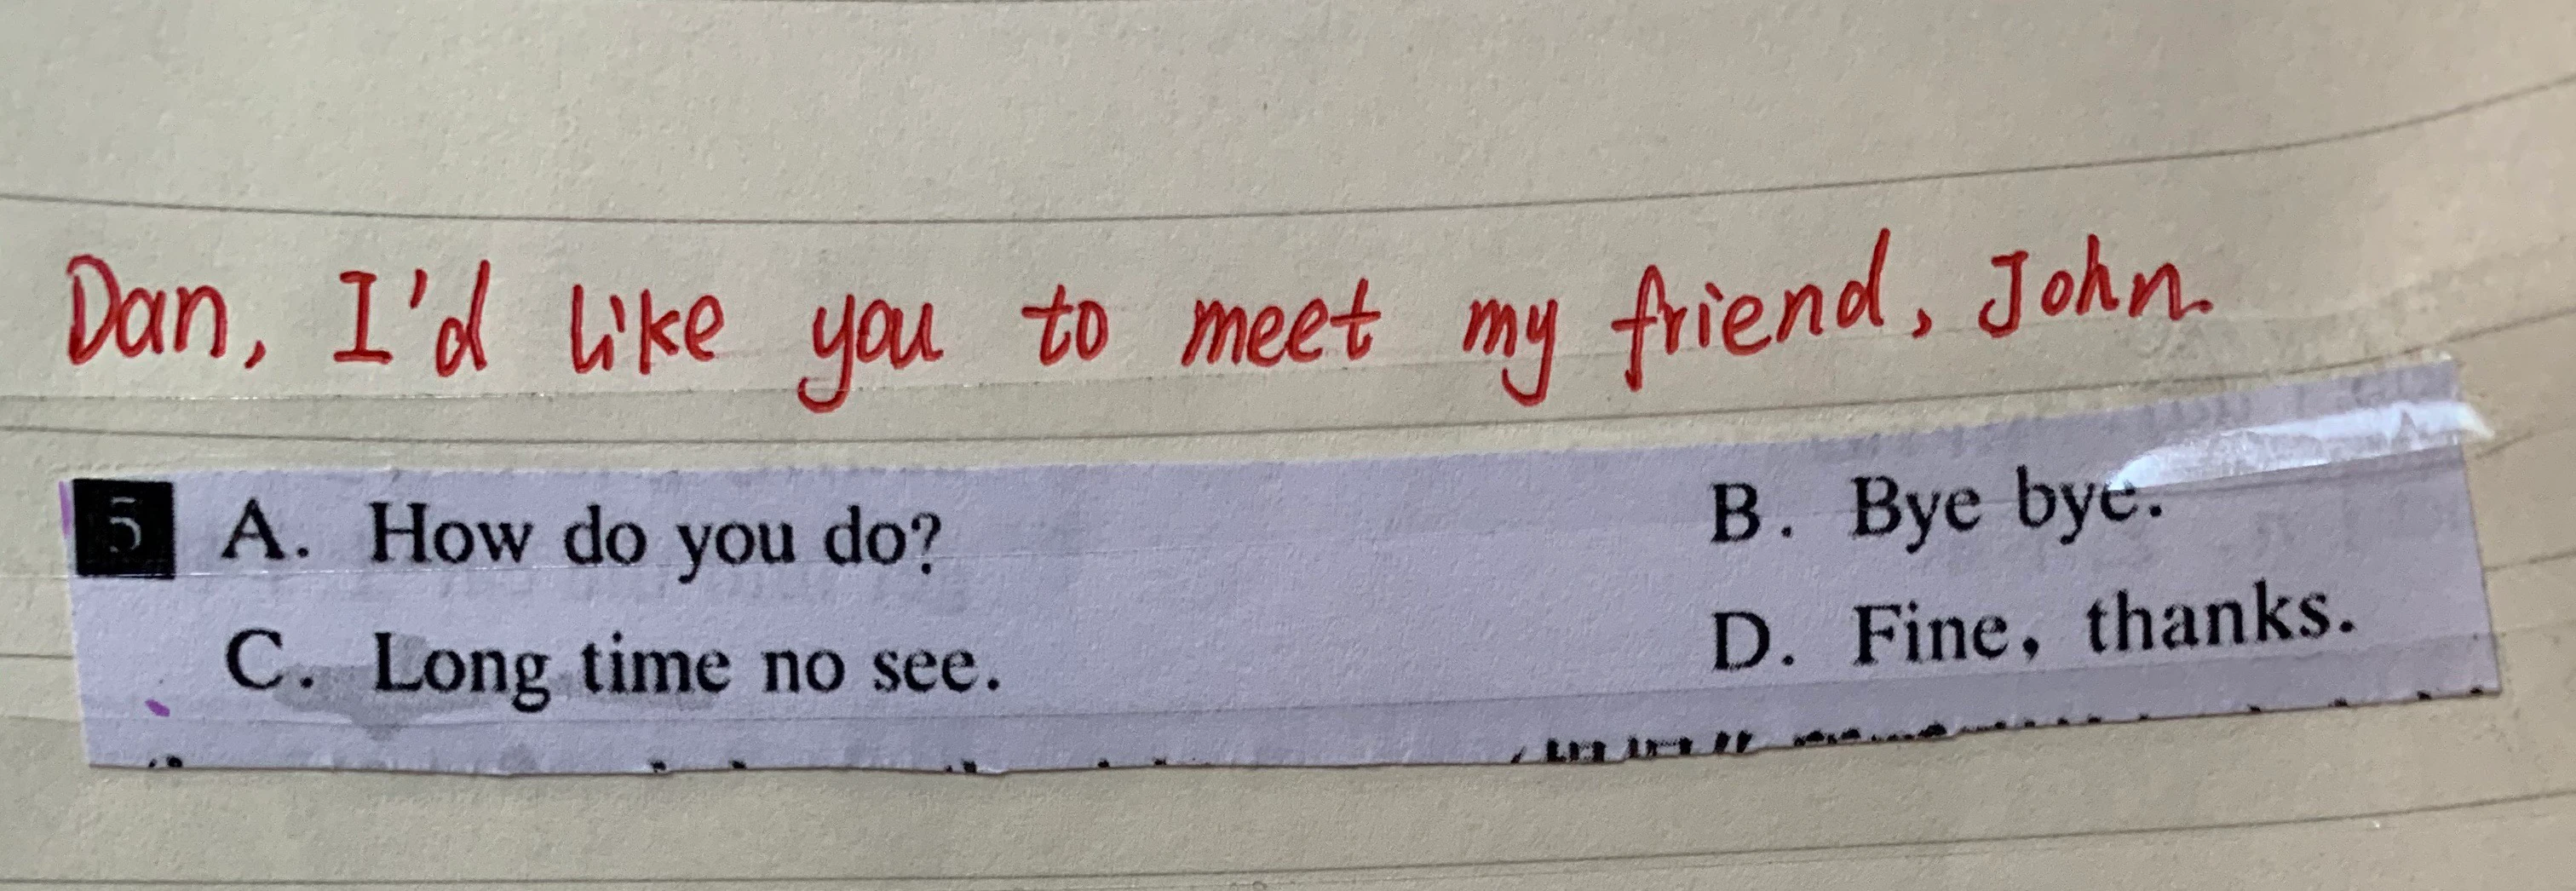 Dan, I'd like you to meet my friend, John.
5 A. How do you do? B. Bye bye.
C. Long time no see. D. Fine, thanks.